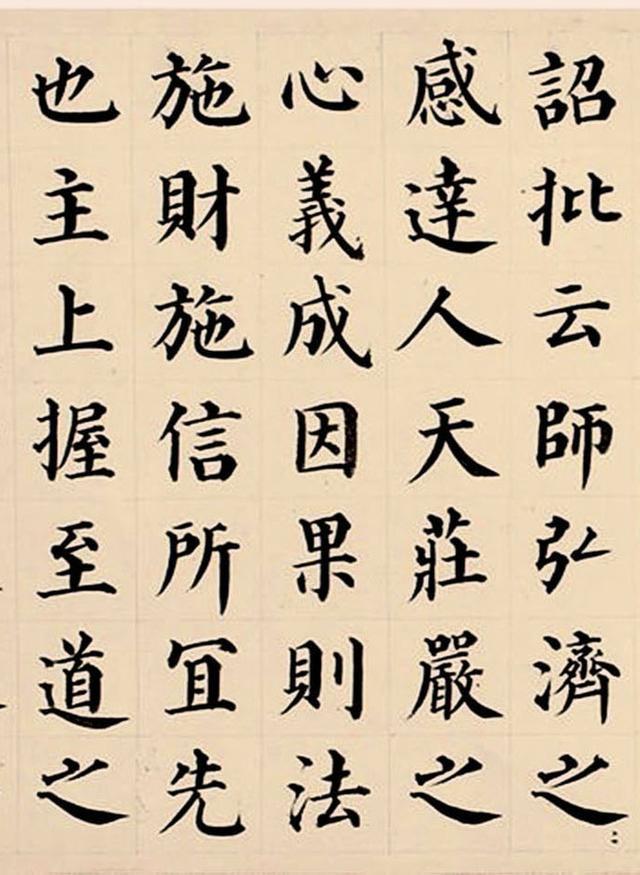 詔批云師弘濟之
感達人天莊嚴之
心義成因果則法
施財施信所冝先
也主上握至道之